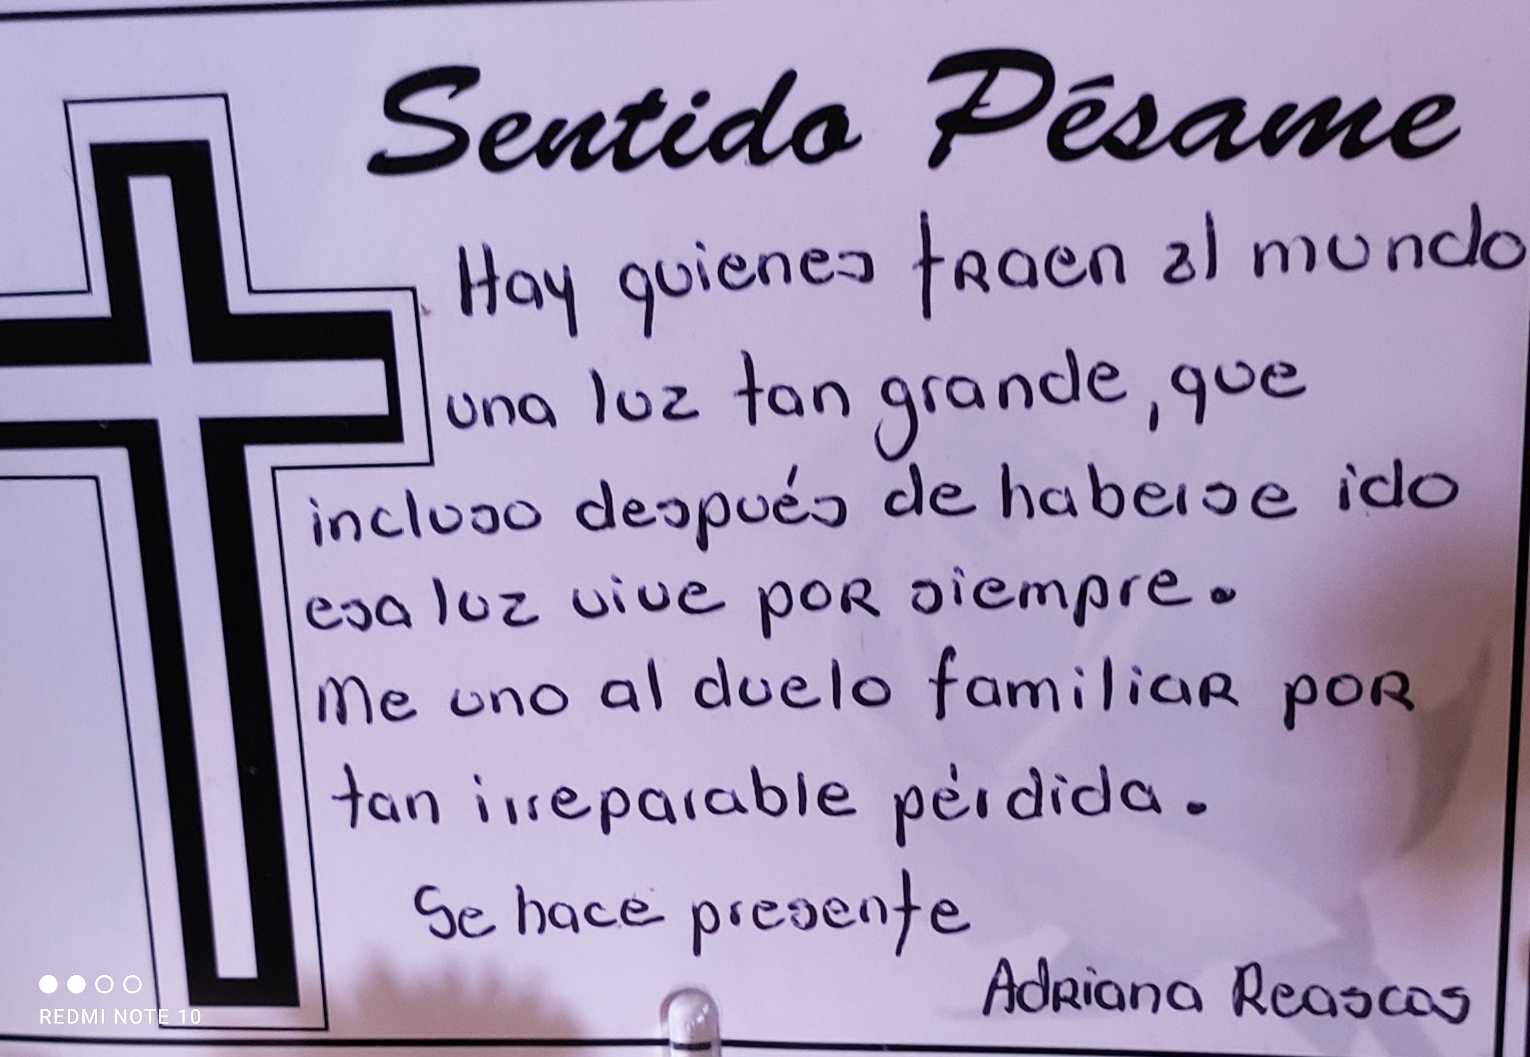 Sentido Pésame
Hay quienes traen al mundo
una luz tan grande, que
incluso después de haberse ido
esa luz vive por siempre.
Me uno al duelo familiar por
tan irreparable pérdida.
Se hace presente
Adriana Reascos
REDMI NOTE 10